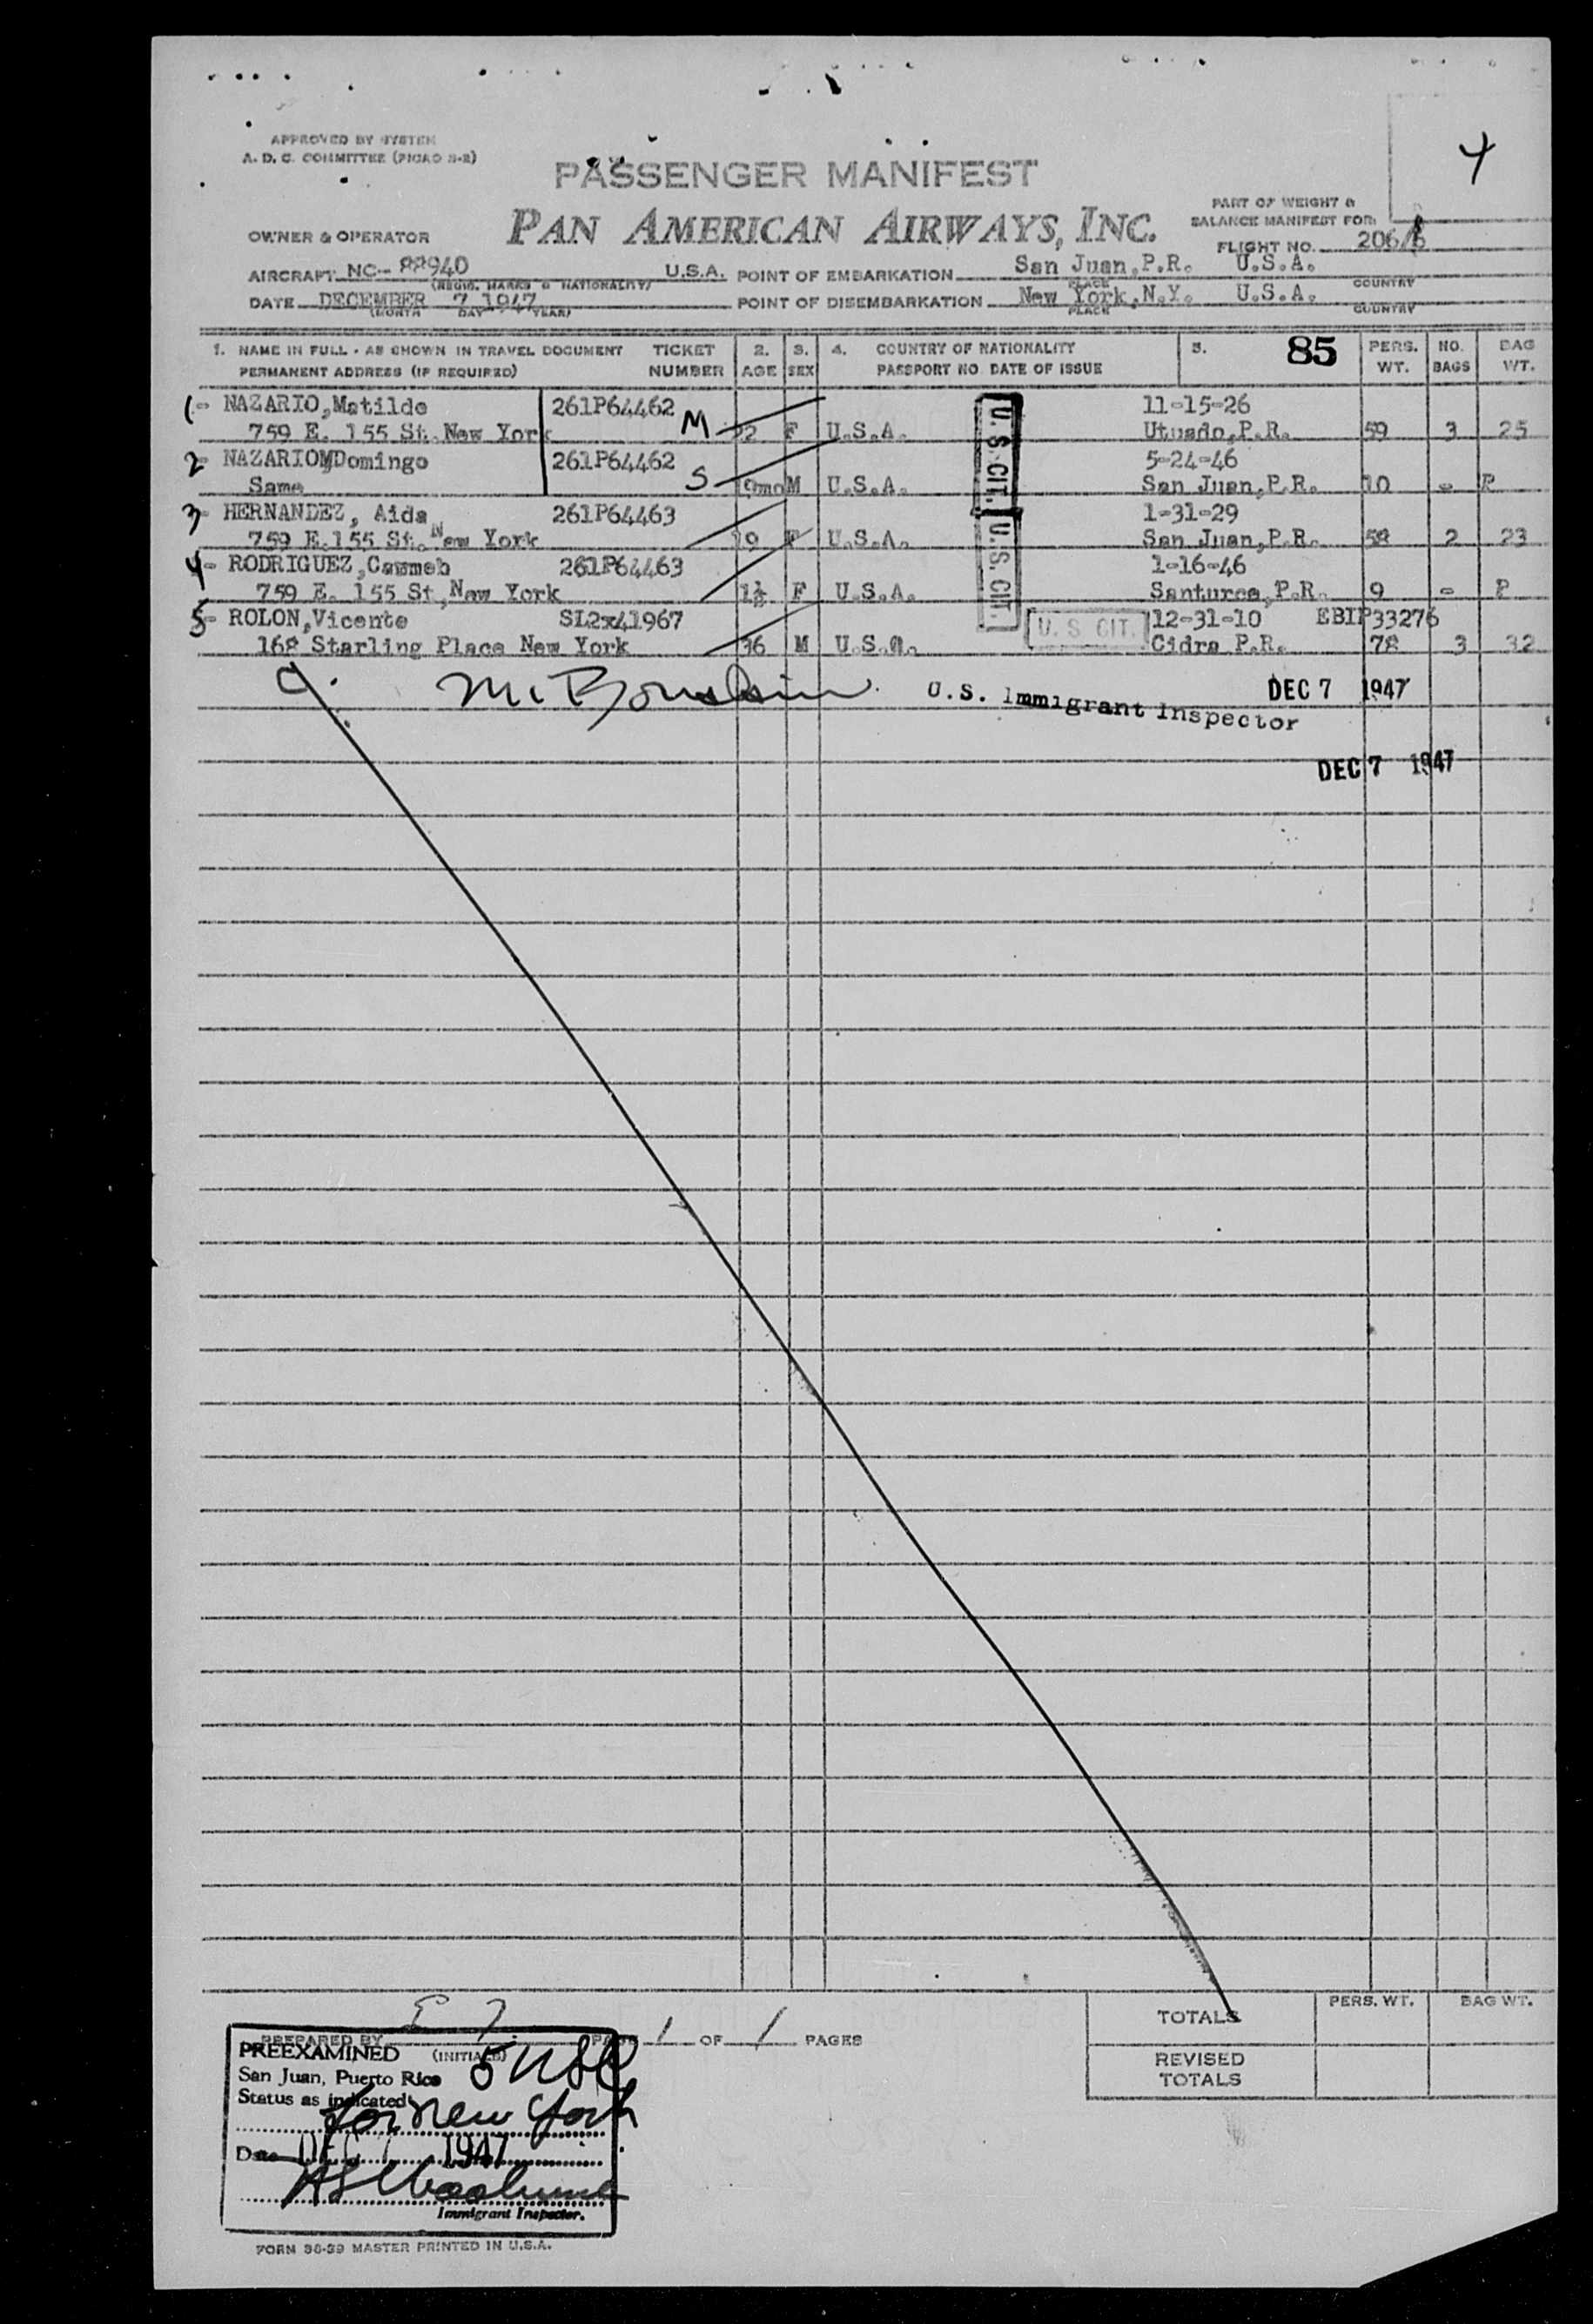 4
APPROVED BY SYSTEM
A. D. C. COMMITTEE (PICAO S-2)
PASSENGER MANIFEST
PAN AMERICAN AIRWAYS, INC.
PART OF WEIGHT &
BALANCE MANIFEST FOR:
OWNER & OPERATOR
FLIGHT NO. 206/
AIRCRAFT NC-88940 U.S.A. POINT OF EMBARKATION San Juan,P.R. U.S.A.
(REGIS. MARKS & NATIONALITY) PLACE COUNTRY
DATE DECEMBER 7 1947 POINT OF DISEMBARKATION New York,N.Y. U.S.A.
(MONTH DAY YEAR) PLACE COUNTRY
1. NAME IN FULL - AS SHOWN IN TRAVEL DOCUMENT TICKET 2. 3. 4. COUNTRY OF NATIONALITY 5. 85 PERS. NO. BAG
PERMANENT ADDRESS (IF REQUIRED) NUMBER AGE SEX PASSPORT NO. DATE OF ISSUE WT. BAGS WT.
1- NAZARIO,Matilde 261P64462 M 11-15-26
759 E. 155 St.New York 22 F U.S.A. Utuado,P.R. 59 3 25
2- NAZARIO Domingo 261P64462 5-24-46
Same S 19mo M U.S.A. San Juan,P.R. 10 - P
3- HERNANDEZ, Aida 261P64463 1-31-29
759 E.155 St.New York 19 F U.S.A. San Juan,P.R. 58 2 23
4- RODRIGUEZ, 261P64463 1-16-46
759 E. 155 St,New York 1½ F U.S.A. Santurce,P.R. 9 - P
5- ROLON,Vicente SL2x41967 12-31-10 EBIP33276
168 Starling Place New York 36 M U.S.A. Cidra P.R. 78 3 32
U.S. CIT.
U.S. CIT.
U.S CIT.
U.S. Immigrant Inspector DEC 7 1947
DEC 7 1947
PREPARED BY (INITIALS) PAGE 1 OF 1 PAGES
TOTALS PERS. WT. BAG WT.
REVISED
TOTALS
PREEXAMINED 5 USC
San Juan, Puerto Rico
Status as indicated
for New York
Date DEC 7 1947
Immigrant Inspector.
FORM 36-39 MASTER PRINTED IN U.S.A.